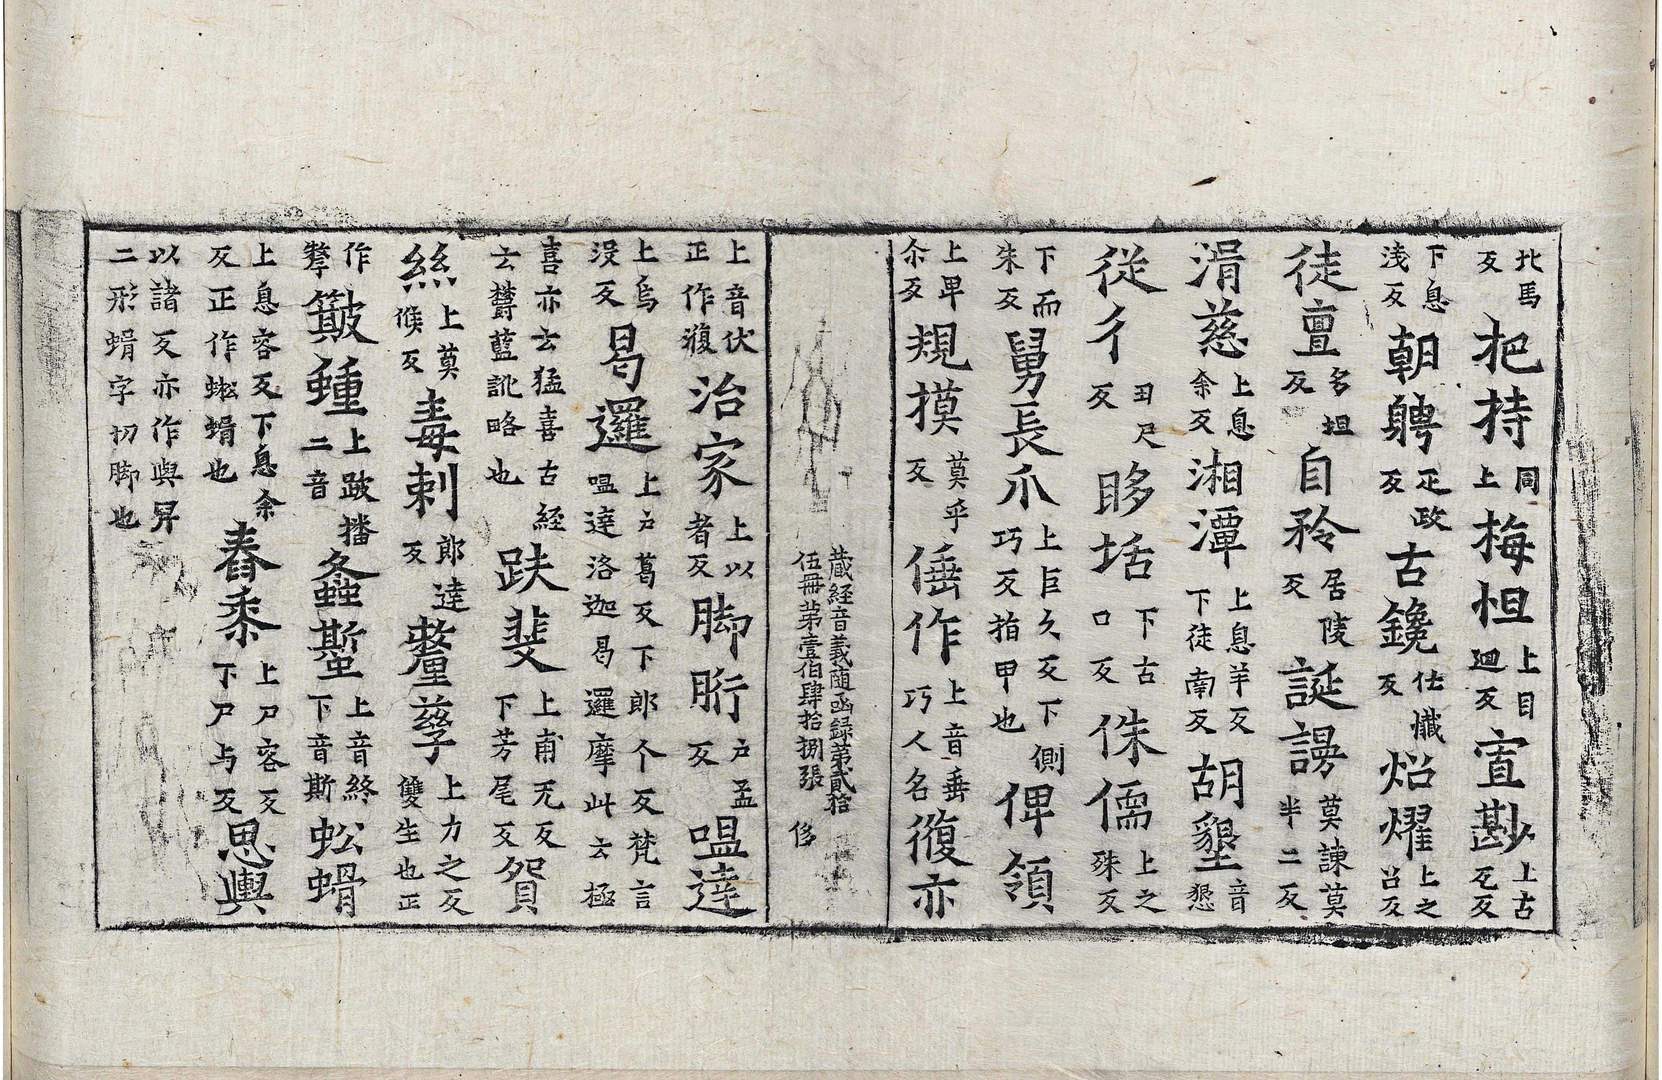 北馬反把持同上梅怛上目迴反寘尠上古瓦反
下息淺反朝聘疋政反古鑱仕懺反炤耀上之召反
徒亶多坦反自矜居陵反誕謾莫諫莫半二反
湑慈上息余反湘潭上息羊反下徒南反胡墾音懇
從彳丑尺反眵䛡下古口反侏儒上之殊反
下而朱反舅長爪上巨久反下側巧反指甲也俾領
上卑尒反規摸莫乎反倕作上音垂巧人名復亦
藏経音義随函録第貳拾
伍冊第壹伯肆拾捌張 侈
上音伏正作澓治家上以者反脚胻户孟反嗢逹
上烏沒反曷邏上户葛反下郎个反梵言嗢逹洛迦曷邏摩此云極
喜亦云猛喜古経云欝藍訿略也趺斐上甫无反下芳尾反賀
絲上莫候反毒剌郎達反釐孳上力之反雙生也正
作孷簸蝩上跛播二音螽蟴上音終下音斯蚣蝟
上息容反下息余反正作蜙蝑也舂黍上尸容反下尸与反思輿
以諸反亦作與舁二形蝑字切脚也